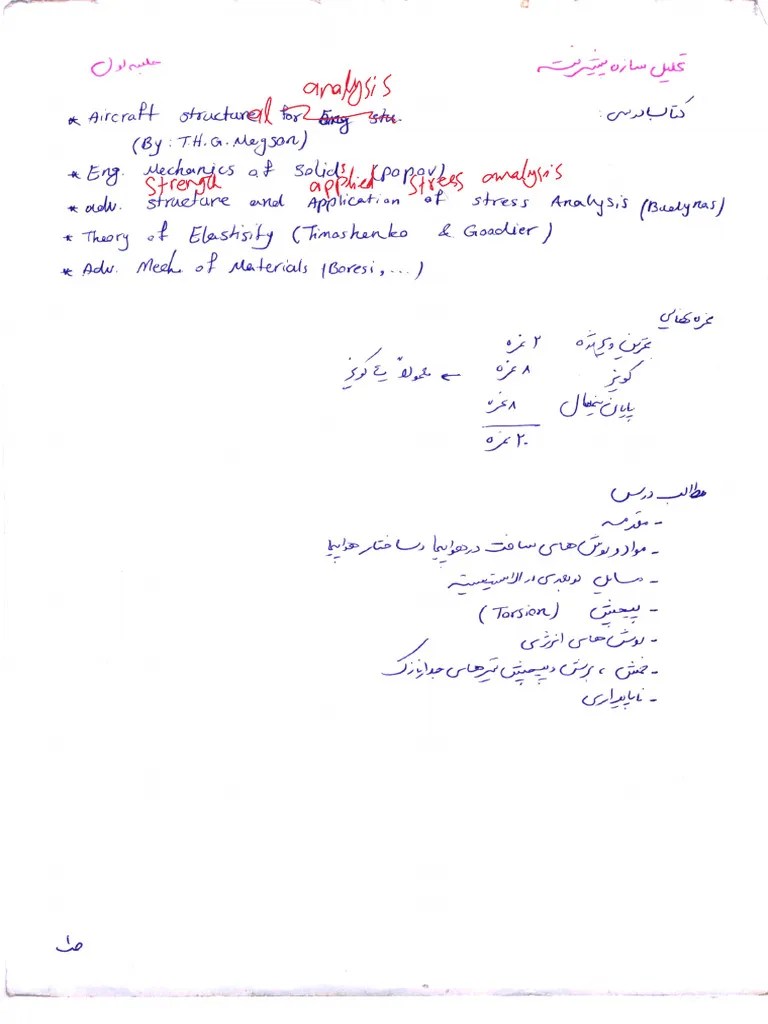 تحلیل سازه پیشرفته
جلسه اول
کتاب درسی:
analysis
* Aircraft structural for Eng stu.
(By: T.H.G. Megson)
* Eng. Mechanics of Solids (popov)
Strength applied stress analysis
* adv. structure and Application of stress Analysis (Budynas)
* Theory of Elastisity (Timoshenko & Goodier)
* Adv. Mech of Materials (Boresi, ...)
نمره نهایی
تمرین و پروژه ۲ نمره
کوئیز ۸ نمره ← معمولاً کوئیز
پایان نیمسال ۸ نمره
۲۰ نمره
مطالب درس
- مقدمه
- مواد و روش های ساخت در هواپیما و ساختار هواپیما
- مسایل دوبعدی در الاستیسیته
- پیچش (Torsion)
- روش های انرژی
- خمش، برش و پیچش تیرهای جدار نازک
- ناپایداری
ص۱